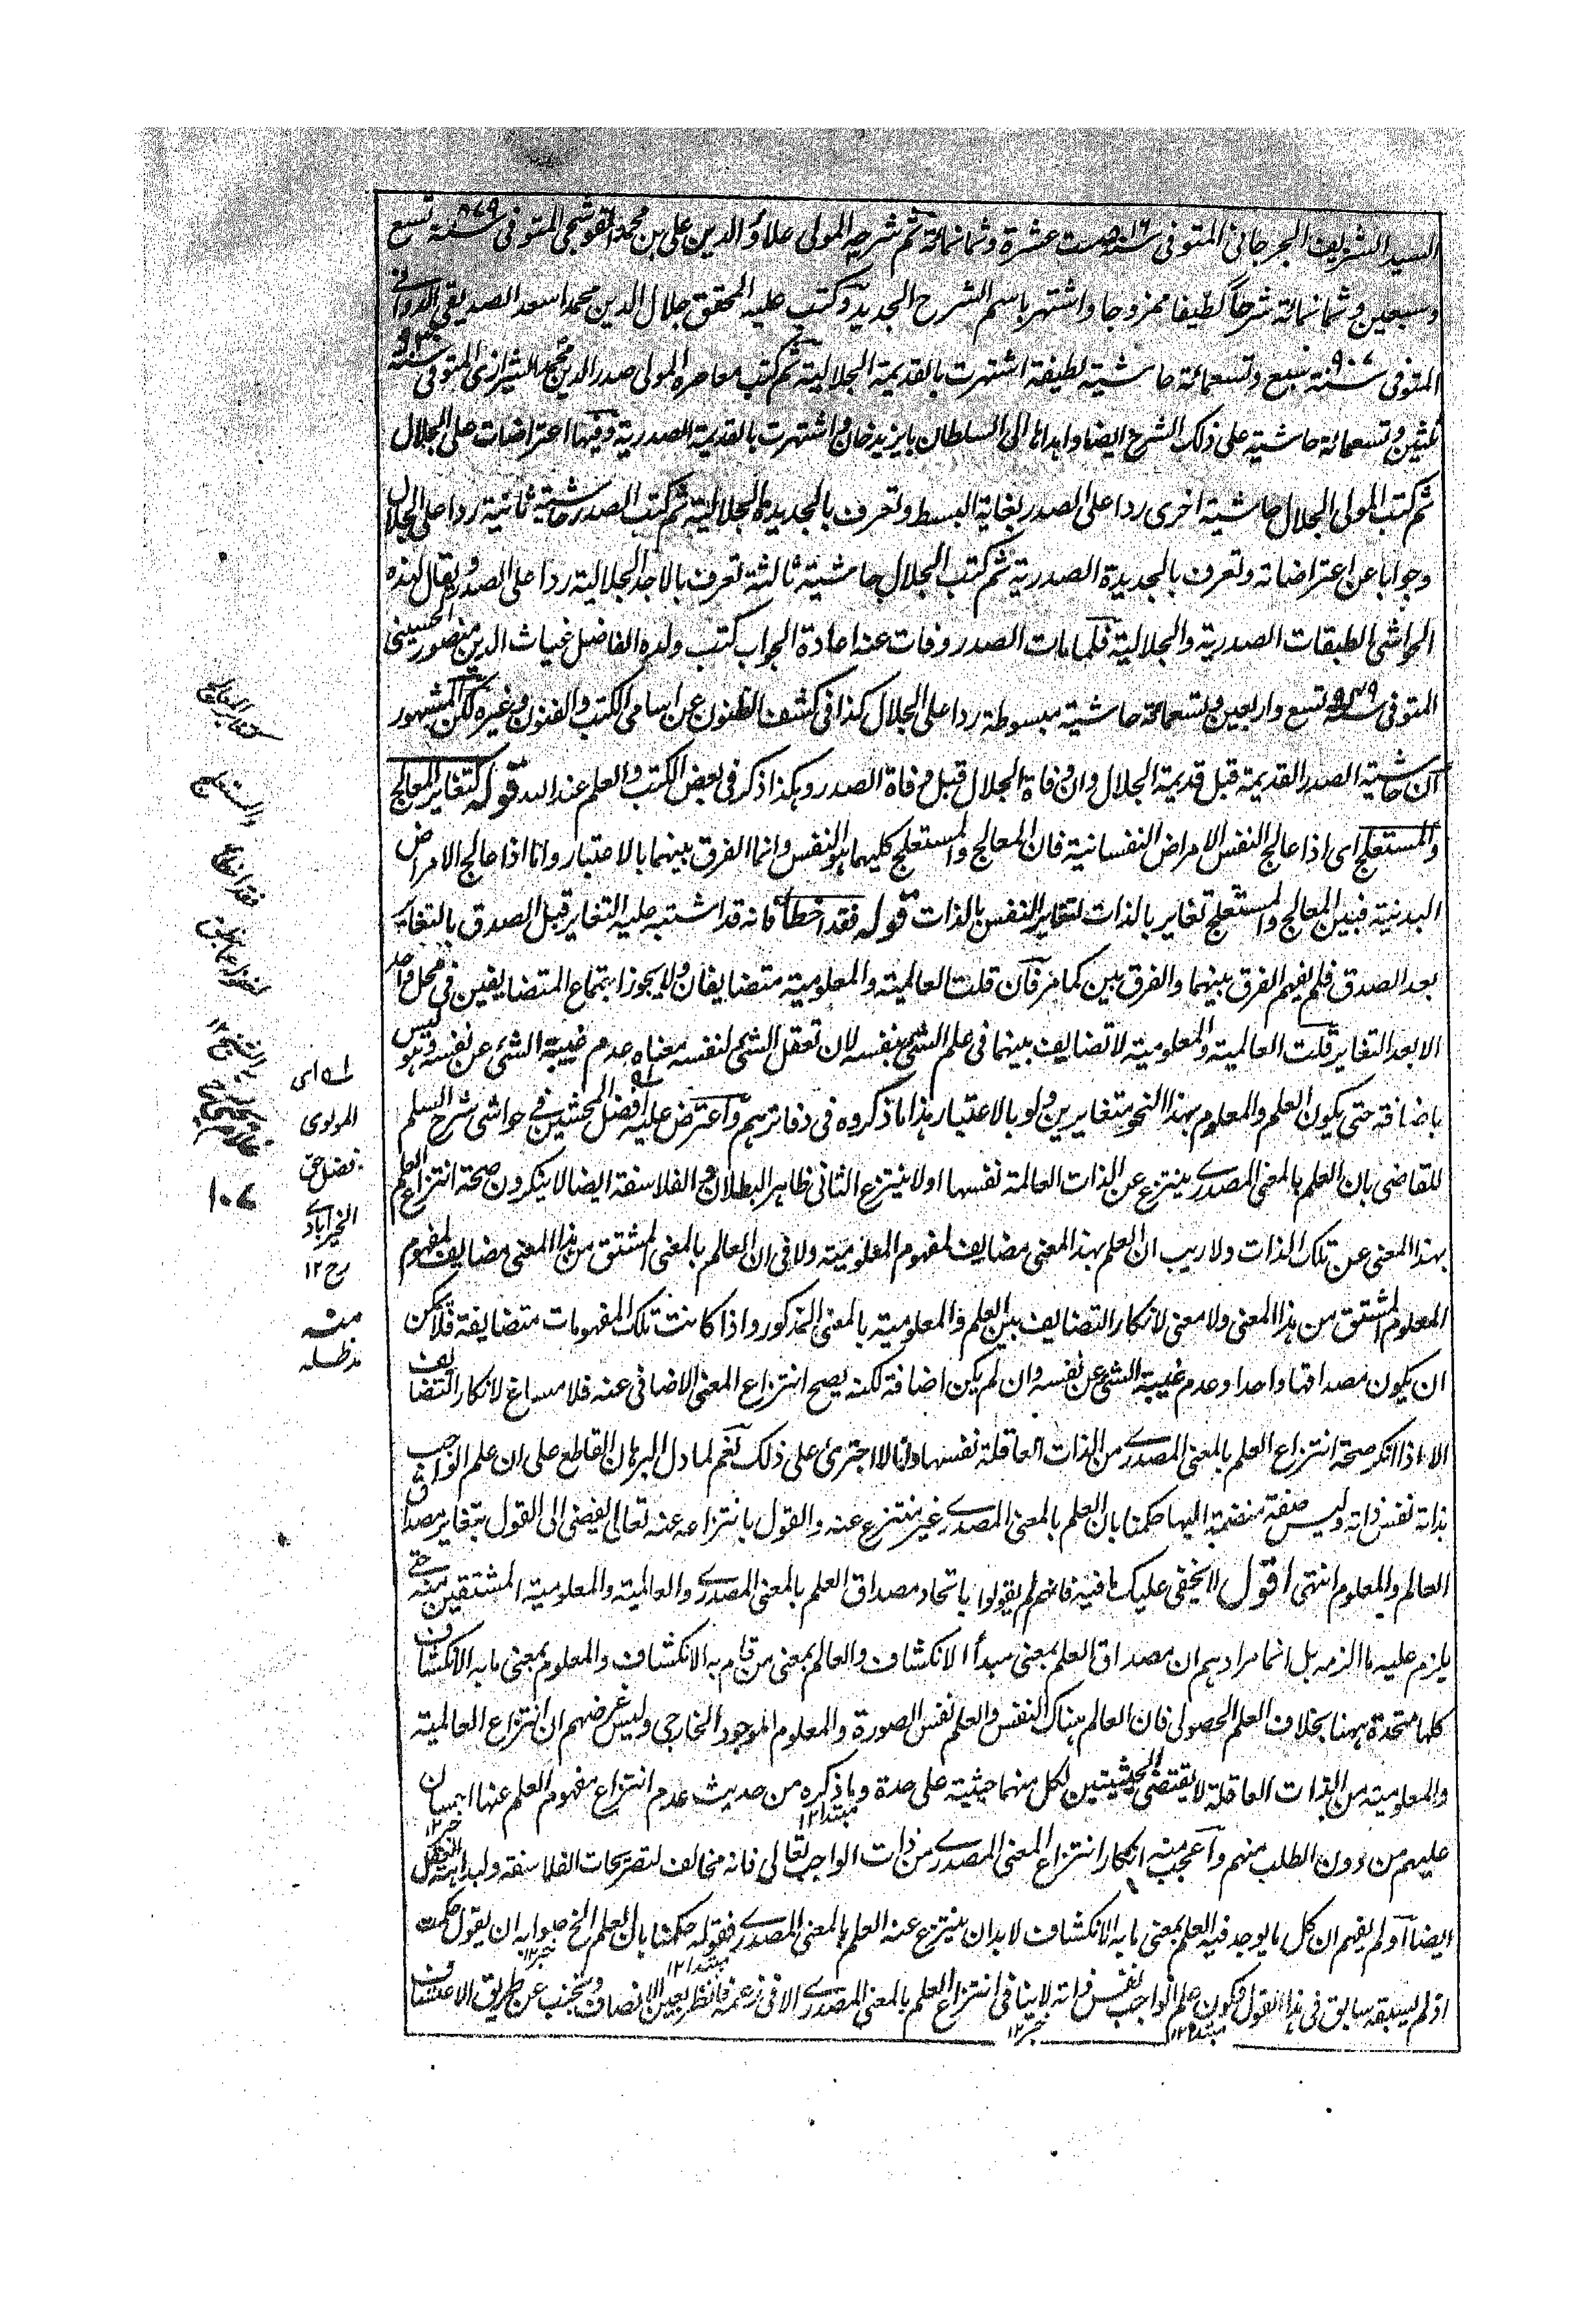 السيد الشريف الجرجاني المتوفى سنة ٨١٦ ست عشرة وثمانمائة ثم شرحه المولى علاؤ الدين علي بن محمد القوشجي المتوفى سنة ٨٧٩ تسع
وسبعين وثمانمائة شرحاً لطيفا ممزوجا واشتهر باسم الشرح الجديد وكتب عليه المحقق جلال الدين محمد اسعد الصديقي الدواني
المتوفى سنة ٩٠٧ سبع وتسعمائة حاشية لطيفة اشتهرت بالقديمة الجلالية ثم كتب معاصره المولى صدر الدين محمد الشيرازي المتوفى سنة ٩٣٠
ثلثين وتسعمائة حاشية على ذلك الشرح ايضا واهداها الى السلطان بايزيد خان واشتهرت بالقديمة الصدرية وفيها اعتراضات على الجلال
ثم كتب المولى الجلال حاشية اخرى ردا على الصدر بغاية البسط وتعرف بالجديدة الجلالية ثم كتب الصدر حاشية ثانية ردا على الجلال
وجوابا عن اعتراضاته وتعرف بالجديدة الصدرية ثم كتب الجلال حاشية ثالثة تعرف بالاجد الجلالية ردا على الصدر ويقال لهذه
الحواشي الطبقات الصدرية والجلالية فلما مات الصدر وفات عنه اعادة الجواب كتب ولده الفاضل غياث الدين منصور الحسيني
المتوفى سنة ٩٤٩ تسع واربعين وتسعمائة حاشية مبسوطة ردا على الجلال كذا في كشف الظنون عن اسامي الكتب والفنون وغيره لكن المشهور
ان حاشية الصدر القديمة قبل قديمة الجلال وان وفاة الجلال قبل وفاة الصدر وهكذا ذكر في بعض الكتب والعلم عند الله قوله كتغاير المعالج
والمستعلج اى اذا عالج النفس الامراض النفسانية فان المعالج والمستعلج كليهما هو النفس وانما الفرق بينهما بالاعتبار وانا اذا عالج الامراض
البدنية فبين المعالج والمستعلج تغاير بالذات لتغاير النفس بالذات قوله فقد اخطأ فانه قد اشتبه عليه التغاير قبل الصدق بالتغاير
بعد الصدق فلم يفهم الفرق بينهما والفرق بين كما مر فان قلت العالمية والمعلومية متضايفان ولا يجوز اجتماع المتضايفين في محل واحد
الا بعد التغاير قلت العالمية والمعلومية لا تضايف بينهما في علم الشئ بنفسه لان تعقل الشئ لنفسه معناه عدم غيبة الشئ عن نفسه وهو ليس
باضافة حتى يكون العلم والمعلوم بهذا النحو متغايرين ولو بالاعتبار هذا ما ذكروه في دفاترهم واعترض عليه افضل المحشين في حواشى شرح السلم
للقاضى بان العلم بالمعنى المصدرى ينتزع عن الذات العالمة نفسها اولا ينتزع الثانى ظاهر البطلان والفلاسفة ايضا لا ينكرون صحة انتزاع العلم
بهذا المعنى عن تلك الذات ولا ريب ان العلم بهذا المعنى مضايف لمفهوم المعلومية ولا في ان العالم بالمعنى المشتق من هذا المعنى مضايف لمفهوم
المعلوم المشتق من هذا المعنى ولا معنى لانكار التضايف بين العلم والمعلومية بالمعنى المذكور واذا كانت تلك المفهومات متضايفة فلا يمكن
ان يكون مصداقها واحدا وعدم غيبة الشئ عن نفسه وان لم يكن اضافة لكنه يصح انتزاع المعنى الاضافى عنه فلا مساغ لانكار التضايف
الا اذا انكر صحة انتزاع العلم بالمعنى المصدرى من الذات العاقلة نفسها وانا لا اجترئ على ذلك نعم لما دل البرهان القاطع على ان علم الواجب
بذاته نفس ذاته وليس صفة منضمة اليها حكمنا بان العلم بالمعنى المصدرى غير منتزع عنه والقول بانتزاعه عنه تعالى يفضى الى القول بتغاير مصداق
العالم والمعلوم انتهى اقول لا يخفى عليك ما فيه فانهم لم يقولوا باتحاد مصداق العلم بالمعنى المصدرى والعالمية والمعلومية المشتقين منه حتى
يلزم عليه ما الزمه بل انما مرادهم ان مصداق العلم بمعنى مبدأ الانكشاف والعالم بمعنى من قام به الانكشاف والمعلوم بمعنى ما به الانكشاف
كلها متحدة ههنا بخلاف العلم الحصولى فان العالم هناك النفس والعلم نفس الصورة والمعلوم الموجود الخارجى وليس غرضهم ان انتزاع العالمية
والمعلومية من الذات العاقلة لا يقتضى الحيثيتين لكل منهما حيثية على حدة وما ذكره من حديث عدم انتزاع مفهوم العلم عنها احسان
مبتدا ١٢ خبر ١٢
عليهم من دون الطلب منهم واعجب منه انكار انتزاع المعنى المصدرى من ذات الواجب تعالى فانه مخالف لتصريحات الفلاسفة ولبداهة العقل
ايضا أو لم يفهم ان كل ما يوجد فيه العلم بمعنى ما به الانكشاف لا بد ان ينتزع عنه العلم بالمعنى المصدرى فقوله حكمنا بان العلم الخ صوابه ان يقول حكمت
مبتدا ١٢ خبر ١٢
اذ لم يسبقه سابق فى هذا القول وكون علم الواجب نفس ذاته لا ينافى انتزاع العلم بالمعنى المصدرى الا فى زعمه فانظر بعين الانصاف وتجنب عن طريق الاعتساف
مبتدا ١٢ خبر ١٢
والمستعلج
فقد اخطأ
١٠٧
اى
المولوى
فضل حق
الخيرآبادى
رح ١٢
منه
مدظله